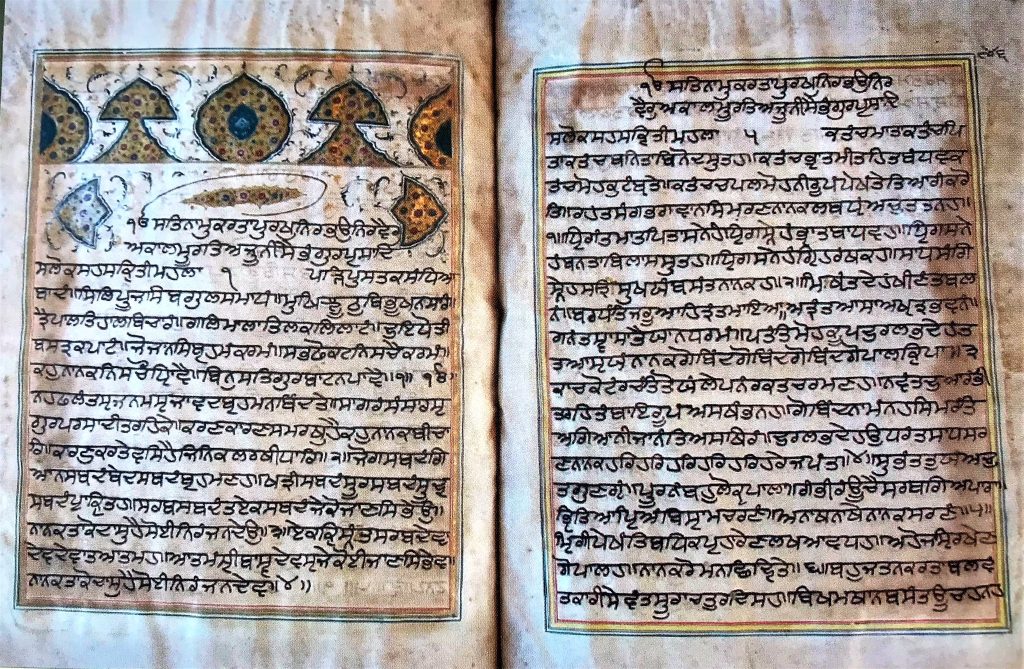 ੴ ਸਤਿਨਾਮੁਕਰਤਾਪੁਰਖੁਨਿਰਭਉਨਿਰਵੈਰੁ
ਅਕਾਲਮੂਰਤਿਅਜੂਨੀਸੈਭੰਗੁਰਪ੍ਰਸਾਦਿ
ਸਲੋਕਸਹਸਕ੍ਰਿਤੀਮਹਲਾ ੧ ਪੜ੍ਹਿਪੁਸਤਕਸੰਧਿਆ
ਬਾਦੰ॥ਸਿਲਪੂਜਸਿਬਗੁਲਸਮਾਧੰ॥ਮੁਖਿਝੂਠੁਬਿਭੂਖਨਸਾਰੰ॥
ਤ੍ਰੈਪਾਲਤਿਹਾਲਬਿਚਾਰੰ॥ਗਲਿਮਾਲਾਤਿਲਕਲਿਲਾਟੰ॥ਦੁਇਧੋਤੀ
ਬਸਤ੍ਰਕਪਾਟੰ॥ਜੋਜਾਨਸਿਬ੍ਰਹਮੰਕਰਮੰ॥ਸਭਫੋਕਟਨਿਸਚੈਕਰਮੰ॥
ਕਹੁਨਾਨਕਨਿਸਚੌਧ੍ਯਿਾਵੈ॥ਬਿਨੁਸਤਿਗੁਰਬਾਟਨਪਾਵੈ॥੧॥
ਨਿਹਫਲੰਤਸ੍ਯਜਨਮਸ੍ਯਜਾਵਦਬ੍ਰਹਮਨਬਿੰਦਤੇ॥ਸਾਗਰੰਸੰਸਾਰਸ੍ਯ
ਗੁਰਪਰਸਾਦੀਤਰਹਿਕੇ॥ਕਰਣਕਾਰਣਸਮਰਥੁਹੈਕਹੁਨਾਨਕਬੀਚਾ
ਰਿ॥ਕਾਰਣੁਕਰਤੇਵਸਿਹੈਜਿਨਿਕਲਰਖੀਧਾਰਿ॥੨॥ਜੋਗਸਬਦੰਗਿ
ਆਨਸਬਦੰਬੇਦਸਬਦੰਬ੍ਰਾਹਮਣਹ॥ਖਤ੍ਰੀਸਬਦੰਸੂਰਸਬਦੰਸੂਦ੍ਰ
ਸਬਦੰਪਰਾਕ੍ਰਿਤਹ॥ਸਰਬਸਬਦੰਤਏਕਸਬਦੰਜੇਕੋਜਾਨਸਿਭੇਉ॥
ਨਾਨਕਤਾਕੋਦਾਸੁਹੈਸੋਈਨਿਰੰਜਨਦੇਉ॥੩॥ਏਕਕ੍ਰਿਸ੍ਨੰਤਸਰਬਦੇਵਾ
ਦੇਵਦੇਵਾਤਆਤਮਹ॥ਆਤਮੰਸ੍ਰੀਬਾਸ੍ਵਦੇਵਸ੍ਯਜੇਕੋਈਜਾਨਸਿਭੇਵ॥
ਨਾਨਕਤਾਕੋਦਾਸੁਹੈਸੋਈਨਿਰੰਜਨਦੇਵ॥੪॥
ੴ ਸਤਿਨਾਮੁਕਰਤਾਪੁਰਖੁਨਿਰਭਉਨਿਰ
ਵੈਰੁਅਕਾਲਮੂਰਤਿਅਜੂਨੀਸੈਭੰਗੁਰਪ੍ਰਸਾਦਿ
ਸਲੋਕਸਹਸਕ੍ਰਿਤੀਮਹਲਾ ੫ ਕਤੰਚਮਾਤਾਕਤੰਚਪਿ
ਤਾਕਤੰਚਬਨਿਤਾਬਿਨੋਦਸੁਤਹ॥ਕਤੰਚਭ੍ਰਾਤਮੀਤਹਿਤਬੰਧਵਕ
ਤੰਚਮੋਹਕੁਟੰਬ੍ਯਤੇ॥ਕਤੰਚਚਪਲਮੋਹਨੀਰੂਪੰਪੇਖੰਤੇਤਿਆਗੰਕਰੋ
ਤਿ॥ਰਹੰਤਸੰਗਭਗਵਾਨਸਿਮਰਣਨਾਨਕਲਬਧ੍ਯੰਅਚੁਤਤਨਹ॥
੧॥ਧ੍ਰਿਗੰਤਮਾਤਪਿਤਾਸਨੇਹੰਧ੍ਰਿਗਸਨੇਹੰਭ੍ਰਾਤਬਾਂਧਵਹ॥ਧ੍ਰਿਗਸਨੇ
ਹੰਬਨਿਤਾਬਿਲਾਸਸੁਤਹ॥ਧ੍ਰਿਗਸਨੇਹੰਗ੍ਰਿਹਾਰਥਕਹ॥ਸਾਧਸੰਗ
ਸ੍ਨੇਹਸਤ੍ਯਿੰਸੁਖਯੰਬਸੰਤਿਨਾਨਕਹ॥੨॥ਮਿਥ੍ਯੰਤਦੇਹੰਖੀਣੰਤਬਲ
ਨੰ॥ਬਰਧੰਤਿਜਰੂਆਹਿਤ੍ਯੰਤਮਾਇਆ॥ਅਤ੍ਯੰਤਆਸਾਆਥਿਤ੍ਯਭਵਨੰ॥
ਗਨੰਤਸ੍ਵਾਸਾਭੈਯਾਨਧਰਮੰ॥ਪਤੰਤਿਮੋਹਕੂਪਦੁਰਲਭ੍ਯਦੇਹੰਤ
ਤਆਸ੍ਰਯੰਨਾਨਕ॥ਗੋਬਿੰਦਗੋਬਿੰਦਗੋਬਿੰਦਗੋਪਾਲਕ੍ਰਿਪਾ॥੩॥
ਕਾਚਕੋਟੰਰਚੰਤਿਤੋਯੰਲੇਪਨੰਰਕਤਚਰਮਣਹ॥ਨਵੰਤਦੁਆਰੰਭੀ
ਤਰਹਿਤੰਬਾਇਰੂਪੰਅਸਥੰਭਨਹ॥ਗੋਬਿੰਦਨਾਮੰਨਹਸਿਮਰੰਤਿ
ਅਗਿਆਨੀਜਾਨੰਤਿਅਸਥਿਰੰ॥ਦੁਰਲਭਦੇਹਉਧਰੰਤਸਾਧਸਰ
ਣਨਾਨਕ॥ਹਰਿਹਰਿਹਰਿਹਰਿਹਰਿਹਰੇਜਪੰਤਿ॥੪॥ਸੁਭੰਤਤੁਯੰਅਚੁ
ਤਗੁਣਗ੍ਯੰ॥ਪੂਰਨੰਬਹੁਲੋਕ੍ਰਿਪਾਲਾ॥ਗੰਭੀਰੰਊਚੈਸਰਬਗਿਅਪਾਰਾ॥
ਭ੍ਰਿਤਿਆਪ੍ਰਿਅੰਬਿਸ੍ਰਾਮਚਰਣੰ॥ਅਨਾਥਨਾਥੇਨਾਨਕਸਰਣੰ॥੫॥
ਮ੍ਰਿਗੀਪੇਖੰਤਬਧਿਕਪ੍ਰਹਾਰੇਣਲਖ੍ਯਆਵਧਹ॥ਅਹੋਜਸ੍ਯਰਖੇਣ
ਗੋਪਾਲਹ॥ਨਾਨਕਰੋਮਨਛੇਦ੍ਯਤੇ॥੬॥ਬਹੁਜਤਨਕਰਤਾਬਲਵੰ
ਤਕਾਰੀਸੇਵੰਤਸੂਰਾਚਤੁਰਦਿਸਹ॥ਬਿਖਮਥਾਨਬਸੰਤਊਚਹਨਹ